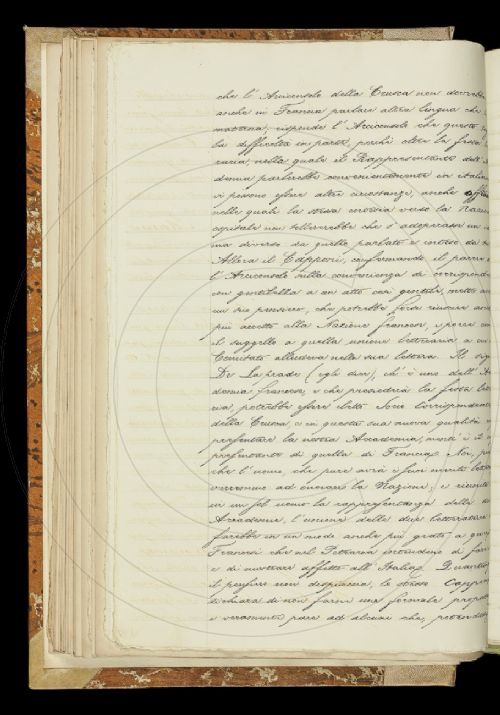 che l'Arciconsolo della Crusca non dovrebbe
anche in Francia parlare altra lingua che
materna; risponde l'Arciconsolo che questo
la difficoltà in parte, perchè oltre la festa
raria, nella quale il Rappresentante dell'
demia parlerebbe convenientemente in italia
vi possono essere altre circostanze, anche
nelle quali la stessa cortesia verso la Nazione
ospitale non tollererebbe che s'adoperasse un
ma diverso da quello parlato e inteso da
Allora il Capponi, conformando il parere
l'Arciconsolo sulla convenienza di corrispondere
con gentilezza a un atto così gentile, mette
un suo pensiero, che potrebbe forse riuscire
più accetto alla Nazione francese, e porre
il suggello a quella unione letteraria a cui
Comitato alludeva nella sua lettera. Il sig
De Laprade (egli dice), ch'è uno dell'
demia francese, e che presiederà la festa lette
ria, potrebb'essere eletto Socio corrispondente
della Crusca, e in questa sua nuova qualità
presentare la nostra Accademia, mentr'è il
presentante di quella di Francia. Noi,
che l'uomo, che pure avrà i suoi meriti lette
verremmo ad onorare la Nazione; e riunita
in un sol uomo la rappresentanza delle
Accademie, l'unione delle due letterature
farebbe in un modo anche più grato a quei
Francesi che nel Petrarca intendono di fare
e di mostrare affetto all'Italia. Quantunque
il pensiero non dispiaccia, lo stesso Capponi
dichiara di non farne una formale proposta
e veramente pare ad alcuni che, potendo